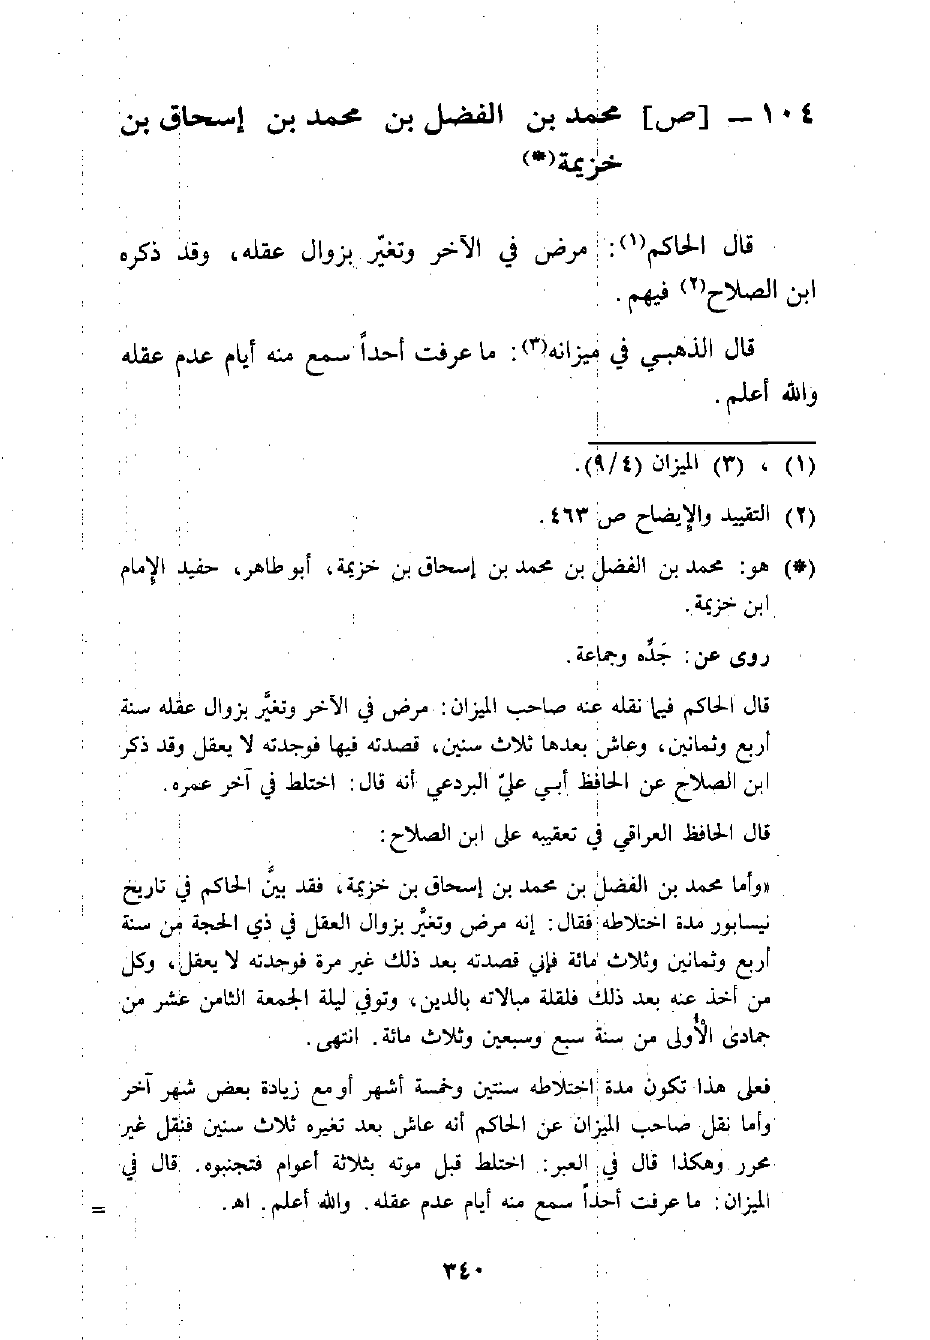 ١٠٤ – [ص] محمد بن الفضل بن محمد بن إسحاق بن
خزيمة(*)
قال الحاكم(١): مرض في الآخر وتغيّر بزوال عقله، وقد ذكره
ابن الصلاح(٢) فيهم.
قال الذهبي في ميزانه(٣): ما عرفت أحداً سمع منه أيام عدم عقله
والله أعلم.
(١) ، (٣) الميزان (٩/٤).
(٢) التقييد والإيضاح ص ٤٦٣.
(*) هو: محمد بن الفضل بن محمد بن إسحاق بن خزيمة، أبو طاهر، حفيد الإمام
ابن خزيمة.
روى عن: جَدِّه وجماعة.
قال الحاكم فيما نقله عنه صاحب الميزان: مرض في الآخر وتغيَّر بزوال عقله سنة
أربع وثمانين، وعاش بعدها ثلاث سنين، قصدته فيها فوجدته لا يعقل وقد ذكر
ابن الصلاح عن الحافظ أبي عليّ البردعي أنه قال: اختلط في آخر عمره.
قال الحافظ العراقي في تعقيبه على ابن الصلاح:
«وأما محمد بن الفضل بن محمد بن إسحاق بن خزيمة، فقد بيَّن الحاكم في تاريخ
نيسابور مدة اختلاطه فقال: إنه مرض وتغيَّر بزوال العقل في ذي الحجة من سنة
أربع وثمانين وثلاث مائة فإني قصدته بعد ذلك غير مرة فوجدته لا يعقل، وكل
من أخذ عنه بعد ذلك فلقلة مبالاته بالدين، وتوفي ليلة الجمعة الثامن عشر من
جمادى الأولى من سنة سبع وسبعين وثلاث مائة. انتهى.
فعلى هذا تكون مدة اختلاطه سنتين وخمسة أشهر أو مع زيادة بعض شهر آخر
وأما نقل صاحب الميزان عن الحاكم أنه عاش بعد تغيره ثلاث سنين فنقل غير
محرر وهكذا قال في العبر: اختلط قبل موته بثلاثة أعوام فتجنبوه. قال في
الميزان: ما عرفت أحداً سمع منه أيام عدم عقله. والله أعلم. اهـ.
=
٣٤٠